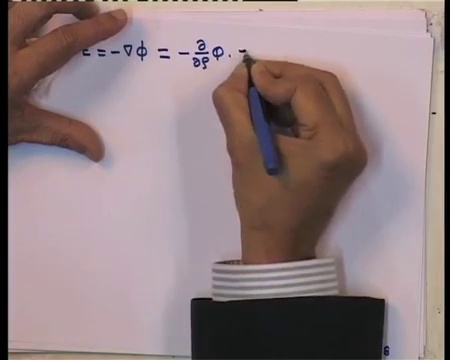 E = -∇φ = - ∂/∂ρ φ . -
8